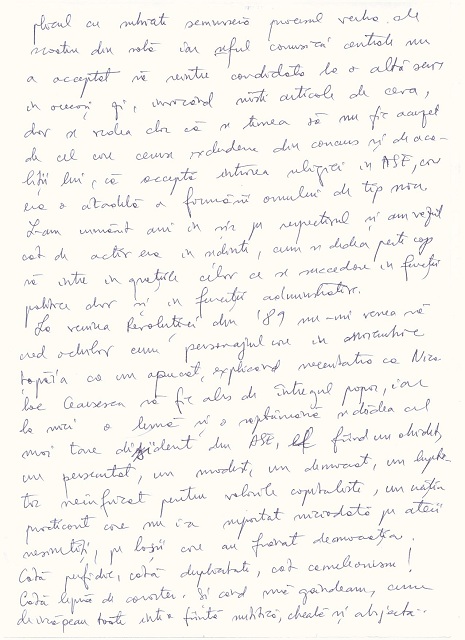 plicul cu numai semnase procesul verbal de
scoatere din sală iar șeful comisiei centrale nu
a acceptat să reintre candidata la o altă serie
în aceeași zi, invocând niște articole de ceva,
dar se vedea clar că se temea să nu fie acuzat
de cel care ceruse excluderea din concurs și de aco-
liții lui, că acceptă intrarea religiei în ASE, care
era o citadelă a formării omului de tip nou
L-am urmărit ani în șir pe respectivul și am văzut
cât de activ era în ședințe, cum se dădea peste cap
să intre în grațiile celor ce se succedau în funcții
politice dar și în funcții administrative.
La venirea Revoluției din '89 nu-mi venea să
cred ochilor cum personajul care în noiembrie
țopăia ca un apucat, explicând necesitatea ca Nico-
lae Ceaușescu să fie ales de întregul popor, iar
la mai o lună și o săptămână se dădea cel
mai tare disident din ASE, el fiind un obidit,
un persecutat, un modest, un democrat, un lupta-
tor neînfricat pentru valorile capitaliste, un creștin
practicant care nu i-a suportat niciodată pe ateii
nesimțiți, pe loșii care au frânat democrația.
Câtă perfidie, câtă duplicitate, cât cameleonism!
Câtă lipsă de caracter. Și când mă gândeam, cum
de încăpeau toate într-o ființă mititică, cheală și abjectă..